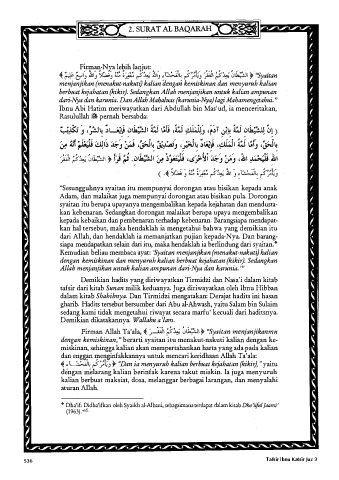 2. SURAT AL BAQARAH
Firman-Nya lebih lanjut:
﴿ الشَّيْطَانُ يَعِدُكُمُ الْفَقْرَ وَيَأْمُرُكُم بِالْفَحْشَاءِ وَاللَّهُ يَعِدُكُم مَّغْفِرَةً مِّنْهُ وَفَضْلًا وَاللَّهُ وَاسِعٌ عَلِيمٌ ﴾ "Syaitan
menjanjikan (menakut-nakuti) kalian dengan kemiskinan dan menyuruh kalian
berbuat kejahatan (kikir). Sedangkan Allah menjanjikan untuk kalian ampunan
dari-Nya dan karunia. Dan Allah Mahaluas (karunia-Nya) lagi Mahamengetahui."
Ibnu Abi Hatim meriwayatkan dari Abdullah bin Mas'ud, ia menceritakan,
Rasulullah ﷺ pernah bersabda:
( إِنَّ لِلشَّيْطَانِ لَمَّةً بِابْنِ آدَمَ، وَلِلْمَلَكِ لَمَّةً، فَأَمَّا لَمَّةُ الشَّيْطَانِ فَإِيْعَادٌ بِالشَّرِّ، وَ تَكْذِيْبٌ
بِالْحَقِّ، وَأَمَّا لَمَّةُ الْمَلَكِ، فَإِيْعَادٌ بِالْخَيْرِ، وَتَصْدِيْقٌ بِالْحَقِّ. فَمَنْ وَجَدَ ذَالِكَ فَلْيَعْلَمْ أَنَّهُ مِنَ
اللهِ فَلْيَحْمَدِ اللهَ، وَمَنْ وَجَدَ الْأُخْرَى، فَلْيَتَعَوَّذْ مِنَ الشَّيْطَانِ. ثُمَّ قَرَأَ ﴿ الشَّيْطَانُ يَعِدُكُمُ الْفَقْرَ
وَيَأْمُرُكُم بِالْفَحْشَاءِ وَ اللَّهُ يَعِدُكُم مَّغْفِرَةً مِّنْهُ وَ فَضْلًا ﴾. )
"Sesungguhnya syaitan itu mempunyai dorongan atau bisikan kepada anak
Adam, dan malaikat juga mempunyai dorongan atau bisikan pula. Dorongan
syaitan itu berupa upayanya mengembalikan kepada kejahatan dan mendusta-
kan kebenaran. Sedangkan dorongan malaikat berupa upaya mengembalikan
kepada kebaikan dan pembenaran terhadap kebenaran. Barangsiapa mendapat-
kan hal tersebut, maka hendaklah ia mengetahui bahwa yang demikian itu
dari Allah, dan hendaklah ia memanjatkan pujian kepada-Nya. Dan barang-
siapa mendapatkan selain dari itu, maka hendaklah ia berlindung dari syaitan.*
Kemudian beliau membaca ayat: 'Syaitan menjanjikan (menakut-nakuti) kalian
dengan kemiskinan dan menyuruh kalian berbuat kejahatan (kikir). Sedangkan
Allah menjanjikan untuk kalian ampunan dari-Nya dan karunia.'"
Demikian hadits yang diriwayatkan Tirmidzi dan Nasa'i dalam kitab
tafsir dari kitab Sunan milik keduanya. Juga diriwayatkan oleh Ibnu Hibban
dalam kitab Shahihnya. Dan Tirmidzi mengatakan: Derajat hadits ini hasan
gharib. Hadits tersebut bersumber dari Abu al-Ahwash, yaitu Salam bin Sulaim
sedang kami tidak mengetahui riwayat secara marfu' kecuali dari haditsnya.
Demikian dikatakannya. Wallahu a'lam.
Firman Allah Ta'ala, ﴿ الشَّيْطَانُ يَعِدُكُمُ الْفَقْرَ ﴾ "Syaitan menjanjikanmu
dengan kemiskinan," berarti syaitan itu menakut-nakuti kalian dengan ke-
miskinan, sehingga kalian akan mempertahankan harta yang ada pada kalian
dan enggan menginfakkannya untuk mencari keridhaan Allah Ta'ala:
﴿ وَيَأْمُرُكُم بِالْفَحْشَاءِ ﴾ "Dan ia menyuruh kalian berbuat kejahatan (kikir)," yaitu
dengan melarang kalian berinfak karena takut miskin. Ia juga menyuruh
kalian berbuat maksiat, dosa, melanggar berbagai larangan, dan menyalahi
aturan Allah.
* Dha'if: Didha'ifkan oleh Syaikh al-Albani, sebagaimana terdapat dalam kitab Dha'iiful Jaami'
(1963).
536
Tafsir Ibnu Katsir Juz 3